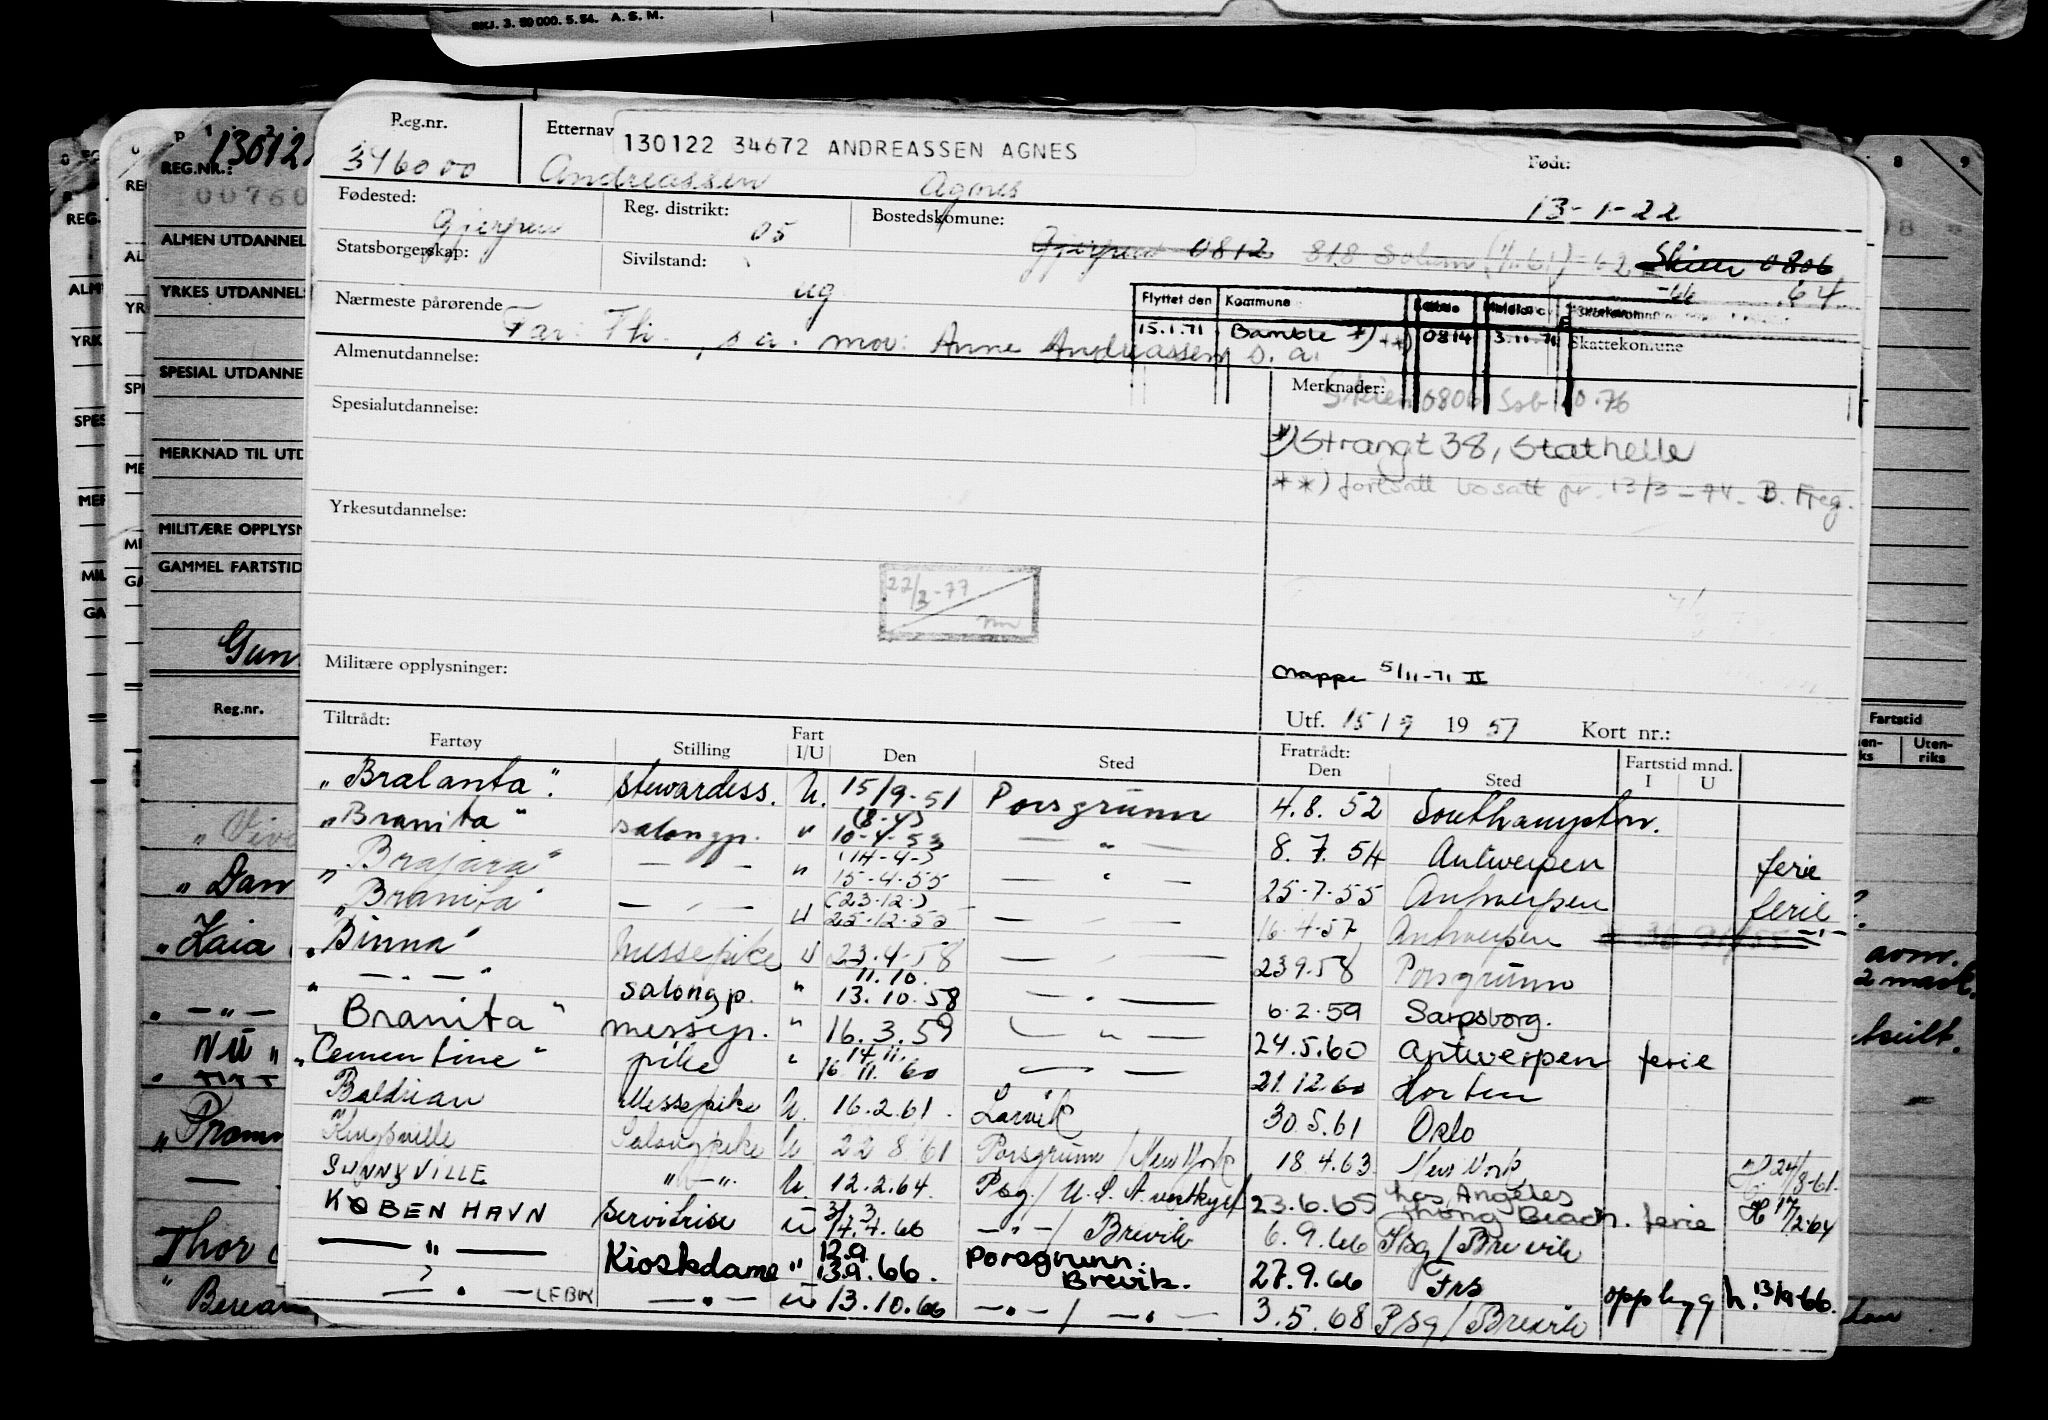 SKJ. 3. 50 000. 5. 54. A. S. M.
Reg.nr. Etternavn 130122 34672 ANDREASSEN AGNES Født:
346000 Andreassen Agnes 13-1-22
Fødested: Gjerpen Reg. distrikt: 05 Bostedskomune: Gjerpen 0812 818 Solum (1/1.61) -62 Skien 0806
Statsborgerskap: Sivilstand: ug -66 .64
Flyttet den Kommune
15.1.71 Bamble *) **) 0814 3.11.71 Skattekomune
Nærmeste pårørende Far: Th. , s.a. mor: Anne Andreassen s.a.
Almenutdannelse:
Merknader: Skien 0806 Ssb 10.76
Spesialutdannelse:
*) Strangt 38, Stathelle
**) fortsatt bosatt pr. 13/3-74- B. Freg.
Yrkesutdannelse:
22/2-77
Militære opplysninger:
Mappe 5/11-71 II
Utf. 15/9 1951 Kort nr.:
Tiltrådt:
Fartøy Stilling Fart I/U Den Sted Fratrådt: Den Sted Fartstid mnd. I U
"Bralanta". stewardess. U. 15/9-51 Porsgrunn 4.8.52 Southampton.
"Branita" salongp. " (8-4) 10-4-53 — " — 8.7.54 Antwerpen ferie
"Brajara" — " — " (14-4-) 15-4-55 — " — 25-7-55 Antwerpen ferie
"Branita" — " — U (23-12-) 25-12-55 — " — 16.4.57 Antwerpen — " —
"Binna" Messepike U 23.4-58 — " — 23.9.58 Porsgrunn
" — " — " salongp. " 11.10. 13.10.58 — " — 6.2.59 Sarpsborg.
"Branita" messep. " 16.3.59 — " — 24.5.60 Antwerpen ferie
"Cementine" pike " 14.11. 16.11.60 — " — 21.12.60 Horten
Baldrian Messepike U. 16.2.61. Larvik 30.5.61 Oslo
Kingsville Salongpike U 22 8 61 Porsgrunn / New York 18.4.63 New York 24/8-61.
SUNNYVILLE " — ". U. 12.2.64. Psg / U.S.A. vestkyst 23.6.65 Los Angeles Long Beach. ferie H 17/2-64
KØBENHAVN Servitrise U 3/3 4.4.66 — " — / Brevik 6.9.66 Psg / Brevik
— " — Kioskdame " 12.9 13.9.66. Porsgrunn. Brevik. 27.9.66 Frs opphyg h. 13/9-66.
— " — LEBW — " — U 13.10.66 — " — / — " — 3.5.68 Psg / Brevik
REG.NR.:
ALMEN UTDANNEL
YRKES UTDANNEL
SPESIAL UTDANNE
MERKNAD TIL UTD
MILITÆRE OPPLYSN
GAMMEL FARTSTID
Gun
Reg.nr.
Fartstid
Uten-
riks